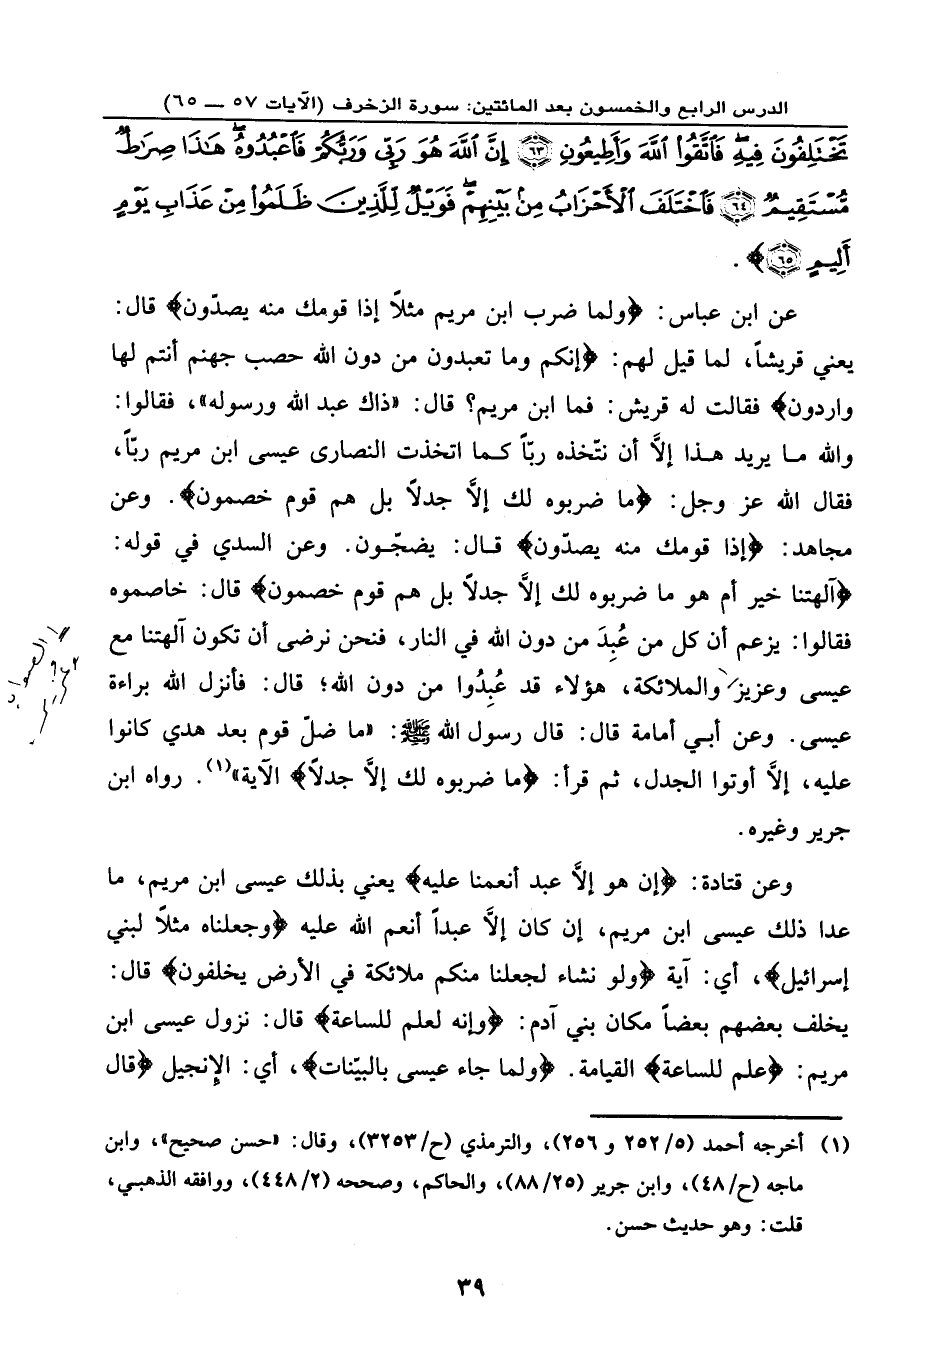 الدرس الرابع والخمسون بعد المائتين: سورة الزخرف (الآيات ٥٧ — ٦٥)
تَخْتَلِفُونَ فِيهِ فَاتَّقُوا اللَّهَ وَأَطِيعُونِ ٦٣ إِنَّ اللَّهَ هُوَ رَبِّي وَرَبُّكُمْ فَاعْبُدُوهُ هَٰذَا صِرَاطٌ
مُسْتَقِيمٌ ٦٤ فَاخْتَلَفَ الْأَحْزَابُ مِنْ بَيْنِهِمْ فَوَيْلٌ لِلَّذِينَ ظَلَمُوا مِنْ عَذَابِ يَوْمٍ
أَلِيمٍ ٦٥ ﴾ .
عن ابن عباس: ﴿ولما ضرب ابن مريم مثلاً إذا قومك منه يصدّون﴾ قال:
يعني قريشاً، لما قيل لهم: ﴿إنكم وما تعبدون من دون الله حصب جهنم أنتم لها
واردون﴾ فقالت له قريش: فما ابن مريم؟ قال: «ذاك عبد الله ورسوله»، فقالوا:
والله ما يريد هذا إلاَّ أن نتّخذه ربّاً كما اتخذت النصارى عيسى ابن مريم ربّاً،
فقال الله عز وجل: ﴿ما ضربوه لك إلاَّ جدلاً بل هم قوم خصمون﴾. وعن
مجاهد: ﴿إذا قومك منه يصدّون﴾ قال: يضجّون. وعن السدي في قوله:
﴿آلهتنا خير أم هو ما ضربوه لك إلاَّ جدلاً بل هم قوم خصمون﴾ قال: خاصموه
فقالوا: يزعم أن كل من عُبِدَ من دون الله في النار، فنحن نرضى أن تكون آلهتنا مع
عيسى وعزيز والملائكة، هؤلاء قد عُبِدُوا من دون الله؛ قال: فأنزل الله براءة
عيسى. وعن أبي أمامة قال: قال رسول الله ﷺ: «ما ضلّ قوم بعد هدي كانوا
عليه، إلاَّ أوتوا الجدل، ثم قرأ: ﴿ما ضربوه لك إلاَّ جدلاً﴾ الآية»(١). رواه ابن
جرير وغيره.
وعن قتادة: ﴿إن هو إلاَّ عبد أنعمنا عليه﴾ يعني بذلك عيسى ابن مريم، ما
عدا ذلك عيسى ابن مريم، إن كان إلاَّ عبداً أنعم الله عليه ﴿وجعلناه مثلاً لبني
إسرائيل﴾، أي: آية ﴿ولو نشاء لجعلنا منكم ملائكة في الأرض يخلفون﴾ قال:
يخلف بعضهم بعضاً مكان بني آدم: ﴿وإنه لعلم للساعة﴾ قال: نزول عيسى ابن
مريم: ﴿علم للساعة﴾ القيامة. ﴿ولما جاء عيسى بالبيّنات﴾، أي: الإنجيل ﴿قال
(١) أخرجه أحمد (٥/ ٢٥٢ و ٢٥٦)، والترمذي (ح/ ٣٢٥٣)، وقال: «حسن صحيح»، وابن
ماجه (ح/ ٤٨)، وابن جرير (٢٥/ ٨٨)، والحاكم، وصححه (٢/ ٤٤٨)، ووافقه الذهبي،
قلت: وهو حديث حسن.
٣٩